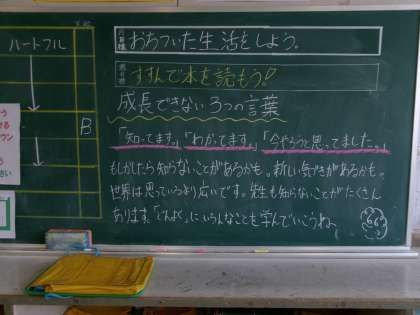 ハートフル
B
おちついた生活をしよう。
すすんで本を読もう!
成長できない3つの言葉
「知ってます。」「わかってます。」「今やろうと思ってました。」
もしかしたら知らないことがあるかも。新しい気づきがあるかも。
世界は思っているより広いです。先生も知らないことがたくさん
あります。「どんよく」にいろんなことを学んでいこうね。